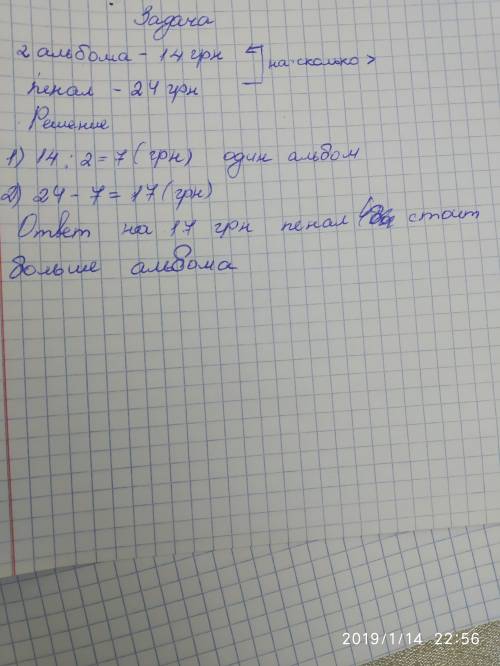 Задача
2 альбома - 14 грн
на сколько >
пенал - 24 грн
Решение
1) 14 : 2 = 7 (грн) один альбом
2) 24 - 7 = 17 (грн)
Ответ на 17 грн пенал стоит
больше альбома
2019/1/14 22:56